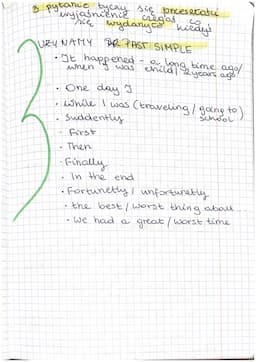 3 pytanie tyczy się przeszłości
wyjaśnienie czegoś co
się wydarzyło kiedyś
UŻYWAMY PAST SIMPLE
• It happened - a long time ago/
when I was child/2 years ago
• One day I
• While I was (traveling/going to)
school
• Suddently
• First
• Then
• Finally
• In the end
• Fortunetly / unfortunetly
• the best/worst thing about
• We had a great/worst time